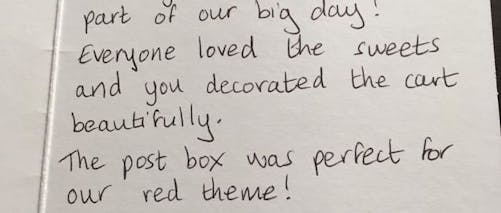 part of our big day!
Everyone loved the sweets
and you decorated the cart
beautifully.
The post box was perfect for
our red theme!